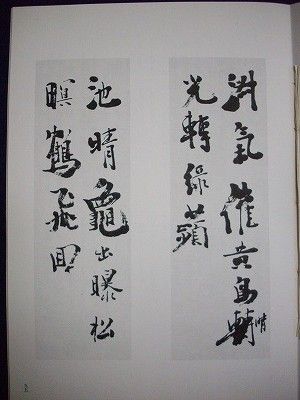 淑氣催黄鳥轉晴
光轉綠蘋
池晴龜出曝松
暝鶴飛回